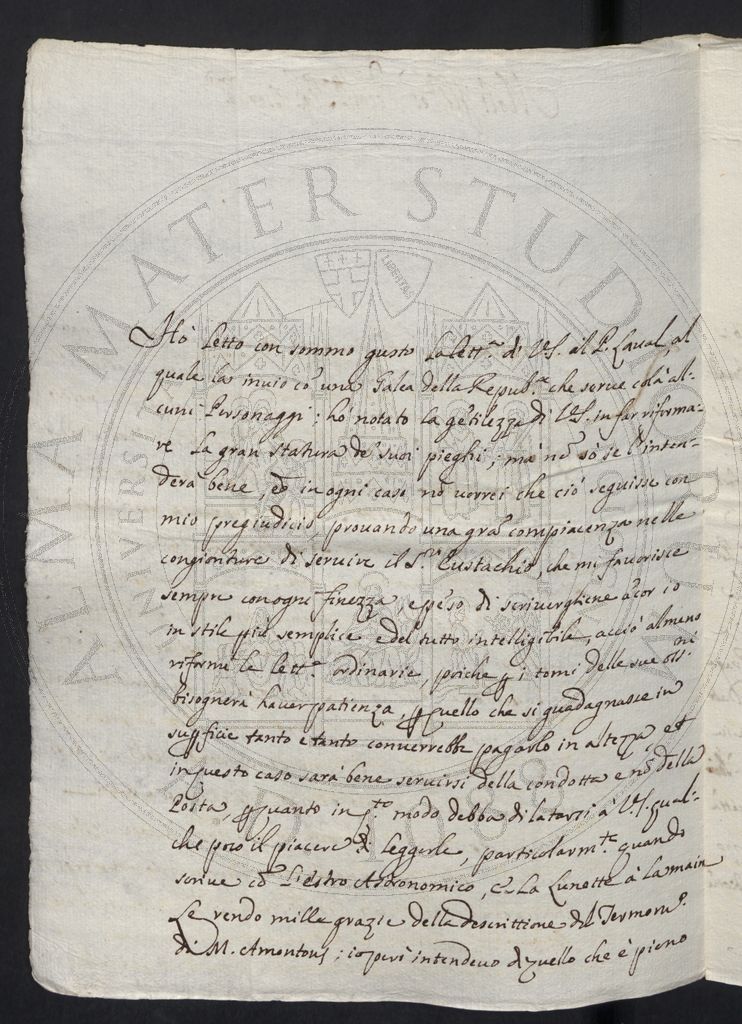 Hò Letto con sommo gusto La lett.ª di VS. al P. Laval, al
quale La invio cõ una Galea della Repub.ca che serve colà al:
cuni Personaggi; hò notato la gẽtilezza di VS. in far riforma:
re La gran statura de' suoi pieghi; mà nõ sò se l'inten:
derà bene, ed in ogni caso nõ vorrei che ciò seguisse con
mio pregiudicio, provando una grã compiacenza nelle
congionture di servire il S.r Eustachio, che mi favorisce
sempre con ogni finezza, e pẽso di scriverghiene ãcor io
in stile più semplice e del tutto intelligibile, acciò almeno
riforme le lett.e ordinarie, poiche p i tomi delle sue oss.ni
bisognerà haver patienza, p quello che si guadagnasse in
supficie tanto e tanto converrebbe pagarlo in altezza, et
in questo caso sarà bene servirsi della condotta e nõ della
Posta p quanto in q.to modo debba dilatarsi à VS. qual:
che poco il piacere di Leggerle, particolarm.te quando
scrive cõ L'estro Astronomico, e La Lunette à La main
Le rendo mille grazie della descrittione del Termom.o
di M. Amontons; io però intendevo di quello che è pieno
ALMA MATER STUDIORUM
UNIVERSITÀ DI BOLOGNA
LIBERTAS
A.D. 1088